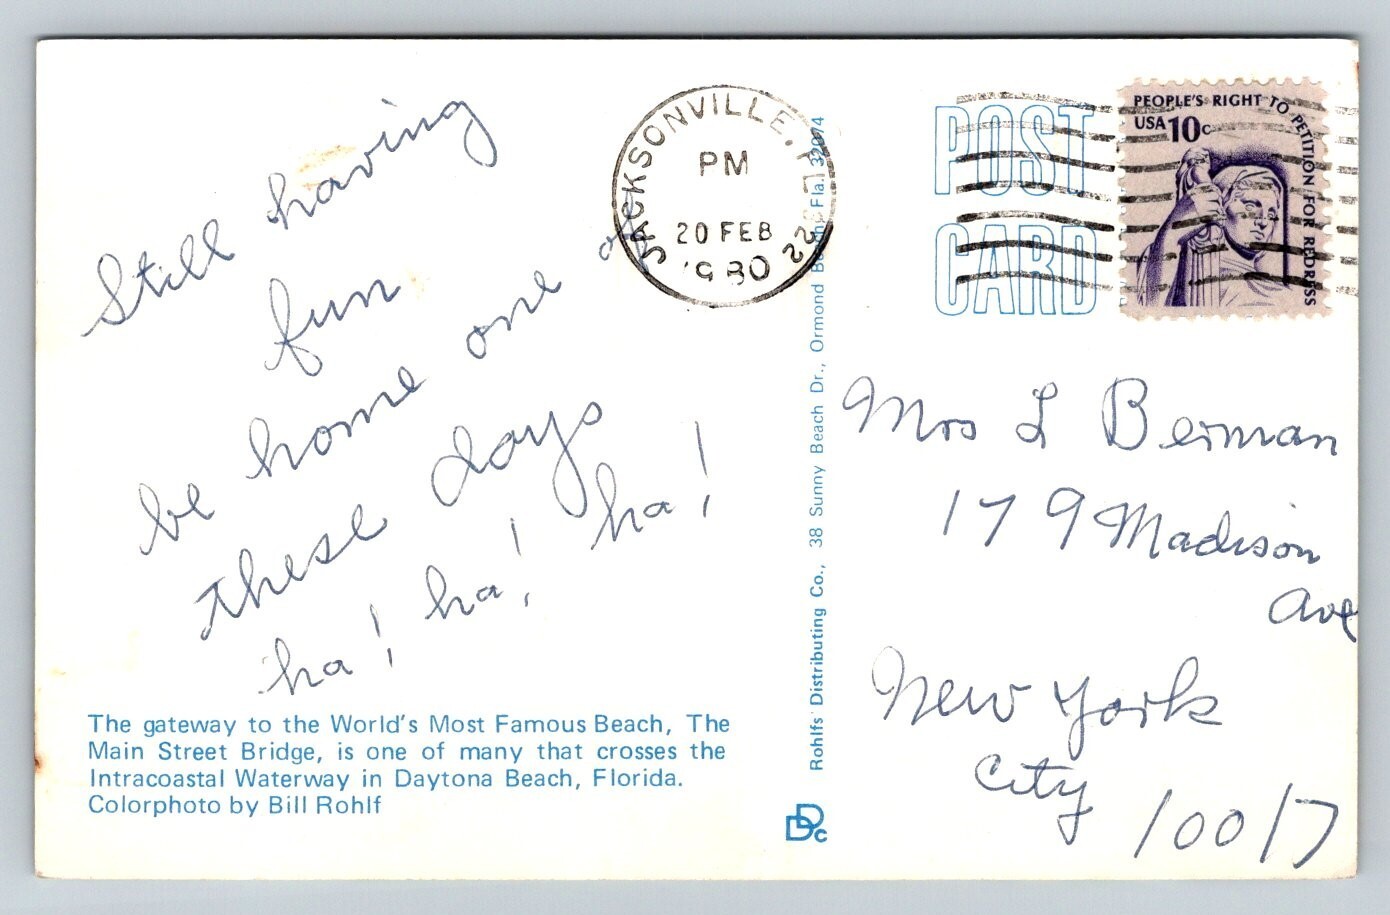 Still having
fun
be home one of
these days
ha! ha! ha!
The gateway to the World's Most Famous Beach, The
Main Street Bridge, is one of many that crosses the
Intracoastal Waterway in Daytona Beach, Florida.
Colorphoto by Bill Rohlf
JACKSONVILLE, FL 322
PM
20 FEB
1980
Rohlfs' Distributing Co., 38 Sunny Beach Dr., Ormond Bch., Fla. 32074
DDc
POST
CARD
PEOPLE'S RIGHT TO PETITION FOR REDRESS
USA 10c
Mrs L Berman
179 Madison
Ave
New York
City
10017